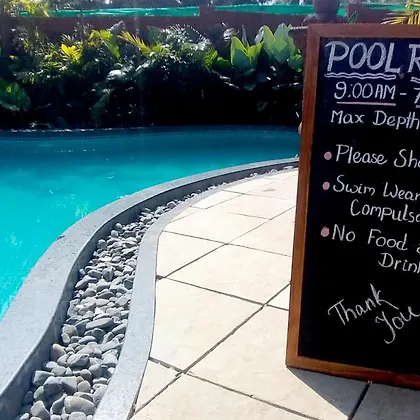 POOL R
9:00AM - 7
Max Depth
Please Sh
Swim Wear
Compuls
No Food &
Drin
Thank
You